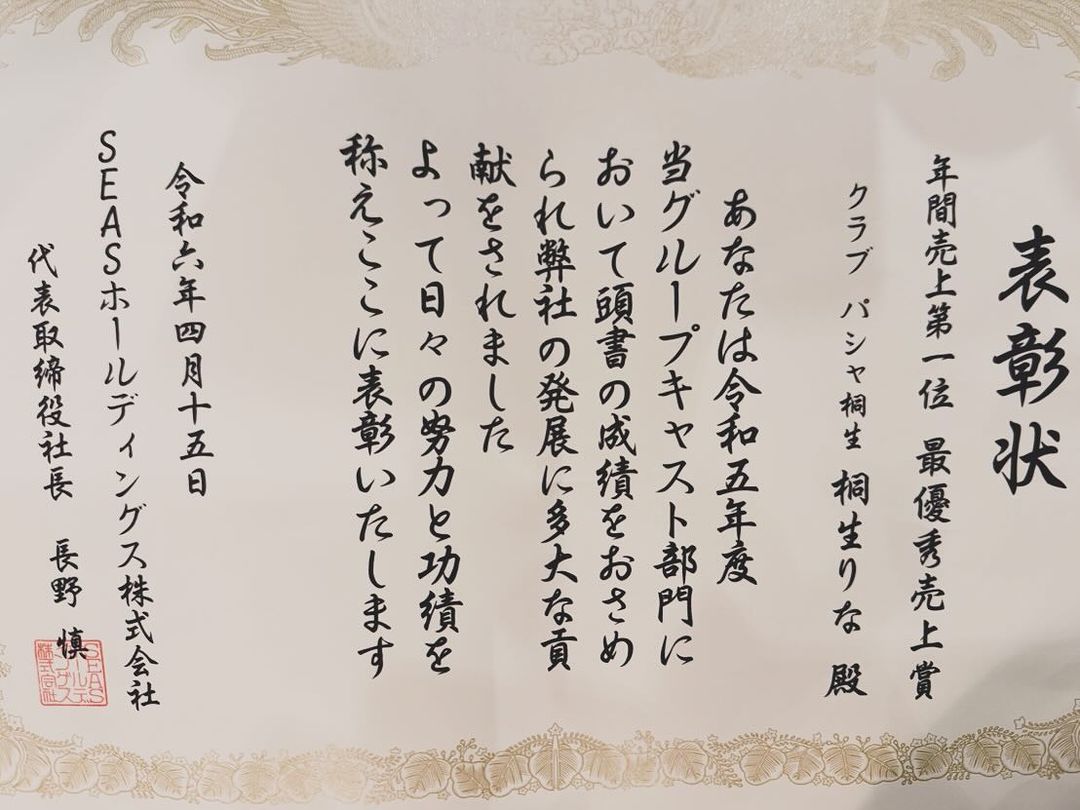 表彰状
年間売上第一位 最優秀売上賞
クラブ パシャ桐生 桐生りな 殿
あなたは令和五年度
当グループキャスト部門に
おいて頭書の成績をおさめ
られ弊社の発展に多大な貢
献をされました
よって日々の努力と功績を
称えここに表彰いたします
令和六年四月十五日
SEASホールディングス株式会社
代表取締役社長 長野 慎
SEAS
ホールディ
ングス
株式会社